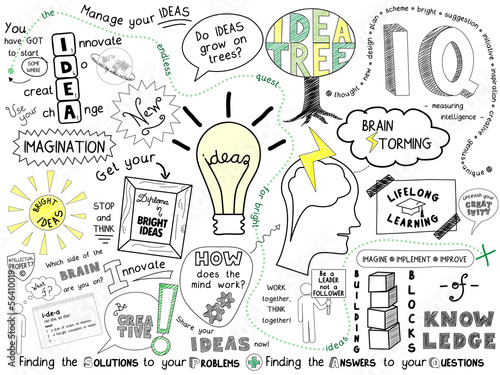 You
have GOT
to start
SOME
WHERE
Innovate
Do
creatE
Use
your
chAnge
the endless quest for bright ideas
Manage your IDEAS
Do IDEAS
grow on
trees?
IDEA
TREE
thought • new • design • plan • scheme • bright • suggestion • initiative • inspiration • creative • genius • unique
IQ
- measuring
intelligence -
IMAGINATION
New
ideas
BRAIN
STORMING
Get your
Diploma
in
BRIGHT
IDEAS
BRIGHT
IDEAS
STOP
and
THINK
LIFELONG
LEARNING
Unleash your
CREAT
IVITY
INTELLECTUAL
PROPERTY
Which side of the
BRAIN
are you on?
Innovate
HOW
does the
mind work?
IMAGINE • IMPLEMENT • IMPROVE
What
if
i·de·a
Be
CREA
TIVE
!
Share your
IDEAS now!
WORK
together,
THINK
together!
Be a
LEADER
not a
FOLLOWER
BUILDING
BLOCKS
-of-
KNOW
LEDGE
Finding the SOLUTIONS to your PROBLEMS + Finding the ANSWERS to your QUESTIONS
Adobe Stock | 56410019